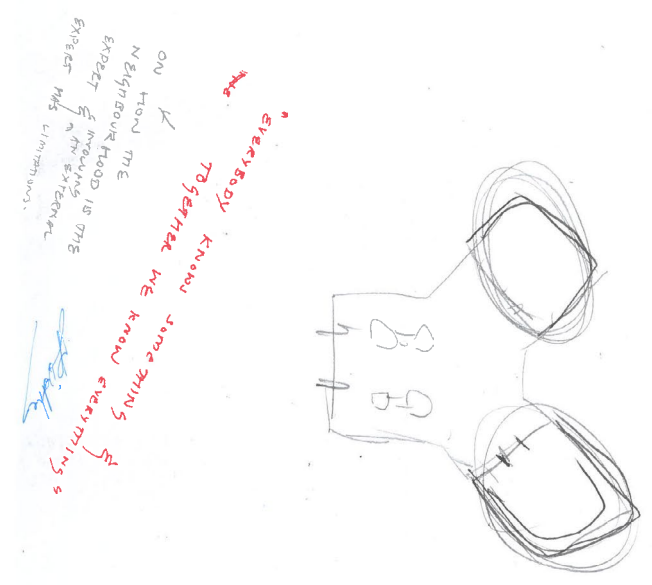 "EVERYBODY KNOWS SOMETHING &
TOGETHER WE KNOW EVERYTHING"
ON HOW THE
NEIGHBOURHOOD IS THE
EXPERT & INVOLVING AN EXTERNAL
EXPERT HAS LIMITATIONS.